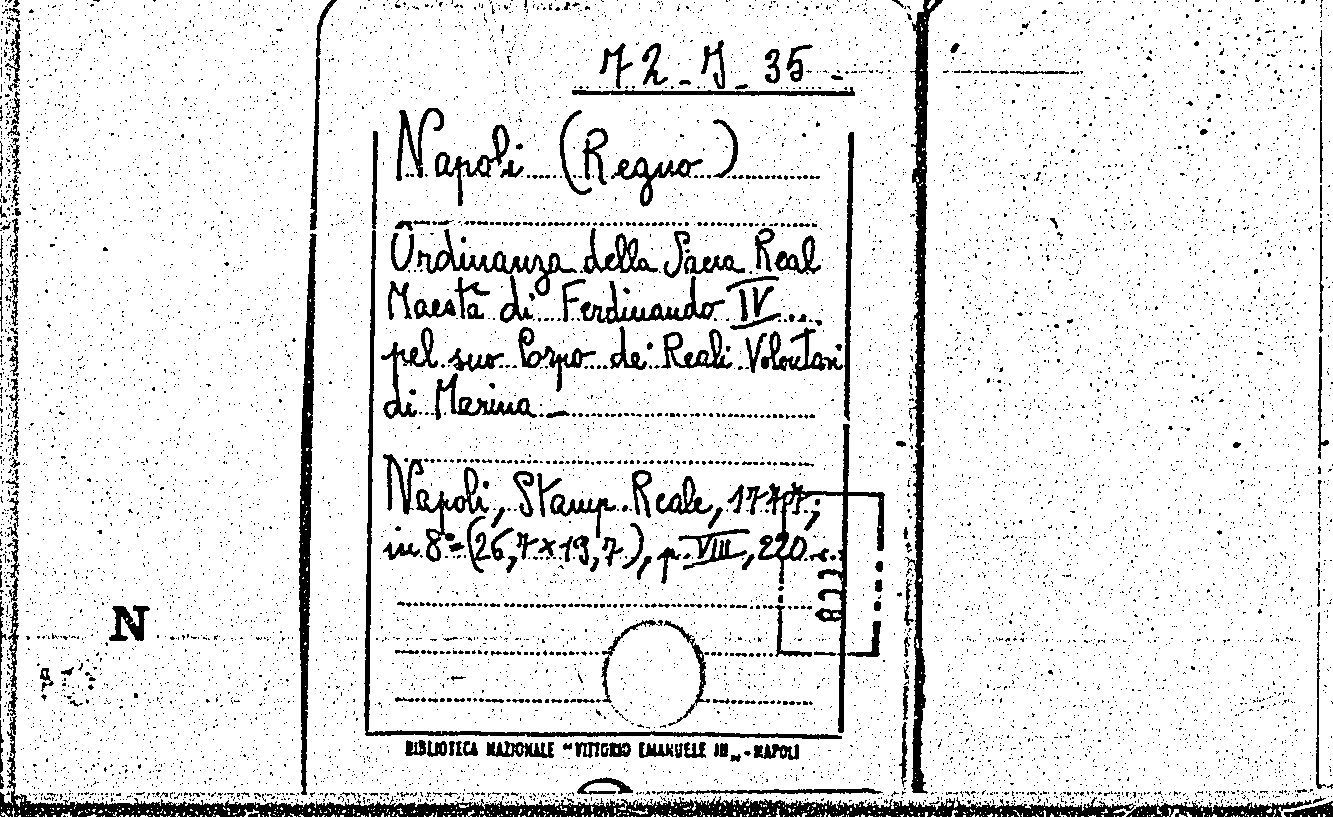 72-J-35-
Napoli (Regno)
Ordinanza della Sacra Real
Maestà di Ferdinando IV...
pel suo Corpo de' Reali Volontari
di Marina
Napoli, Stamp. Reale, 1777;
in 8° (26,7x19,7), p. VIII, 220
N
BIBLIOTECA NAZIONALE "VITTORIO EMANUELE III" - NAPOLI